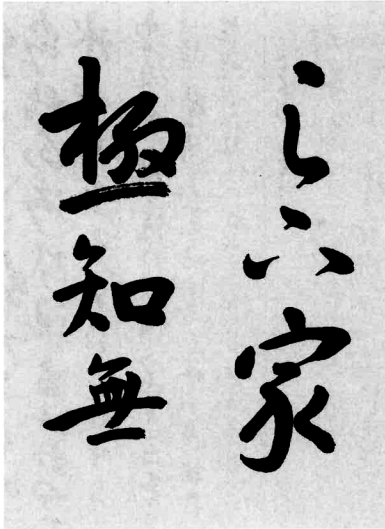 之六家
極知無